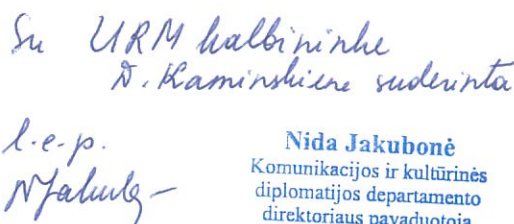 Su URM kalbininke
D. Kaminskiene suderinta
l.e.p.
NJakub
Nida Jakubonė
Komunikacijos ir kultūrinės
diplomatijos departamento
direktoriaus pavaduotoja